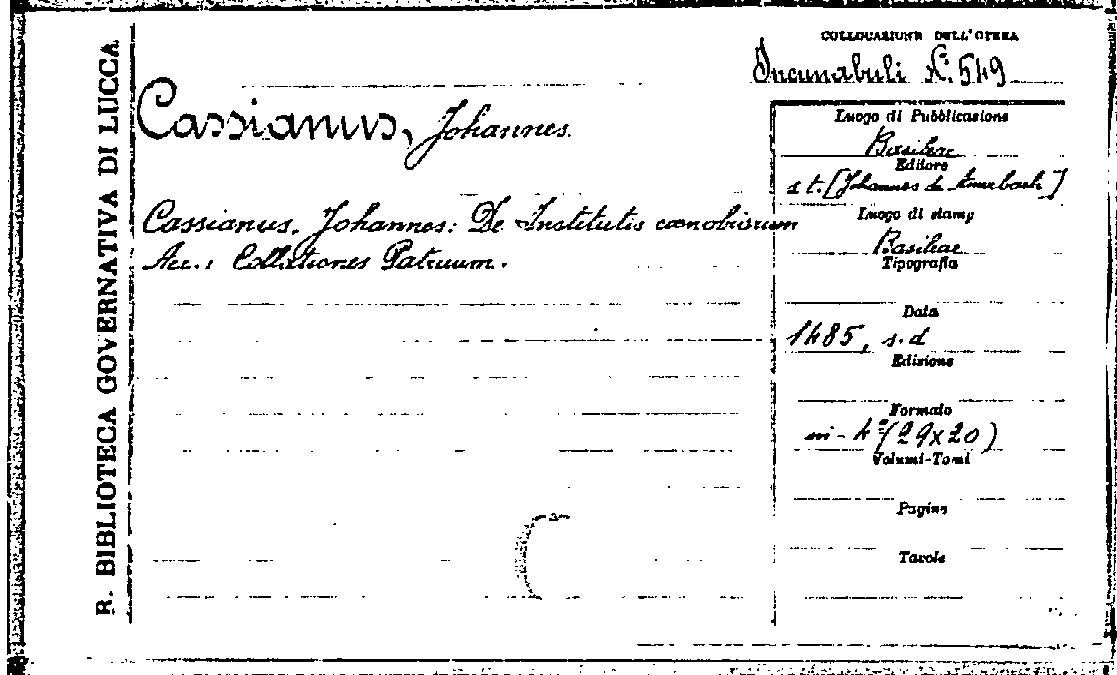 R. BIBLIOTECA GOVERNATIVA DI LUCCA
COLLOCAZIONE DELL'OPERA
Incunabuli N. 549
Cassianus, Johannes.
Cassianus, Johannes: De Institutis cœnobiorum
Acc.: Collationes Patruum.
Luogo di Pubblicazione
Basileae
Editore
s t. [Johannes de Amerbach]
Luogo di stamp
Basileae
Tipografia
Data
1485, s. d
Edizione
Formato
in - 4° (29x20)
Volumi-Tomi
Pagine
Tavole